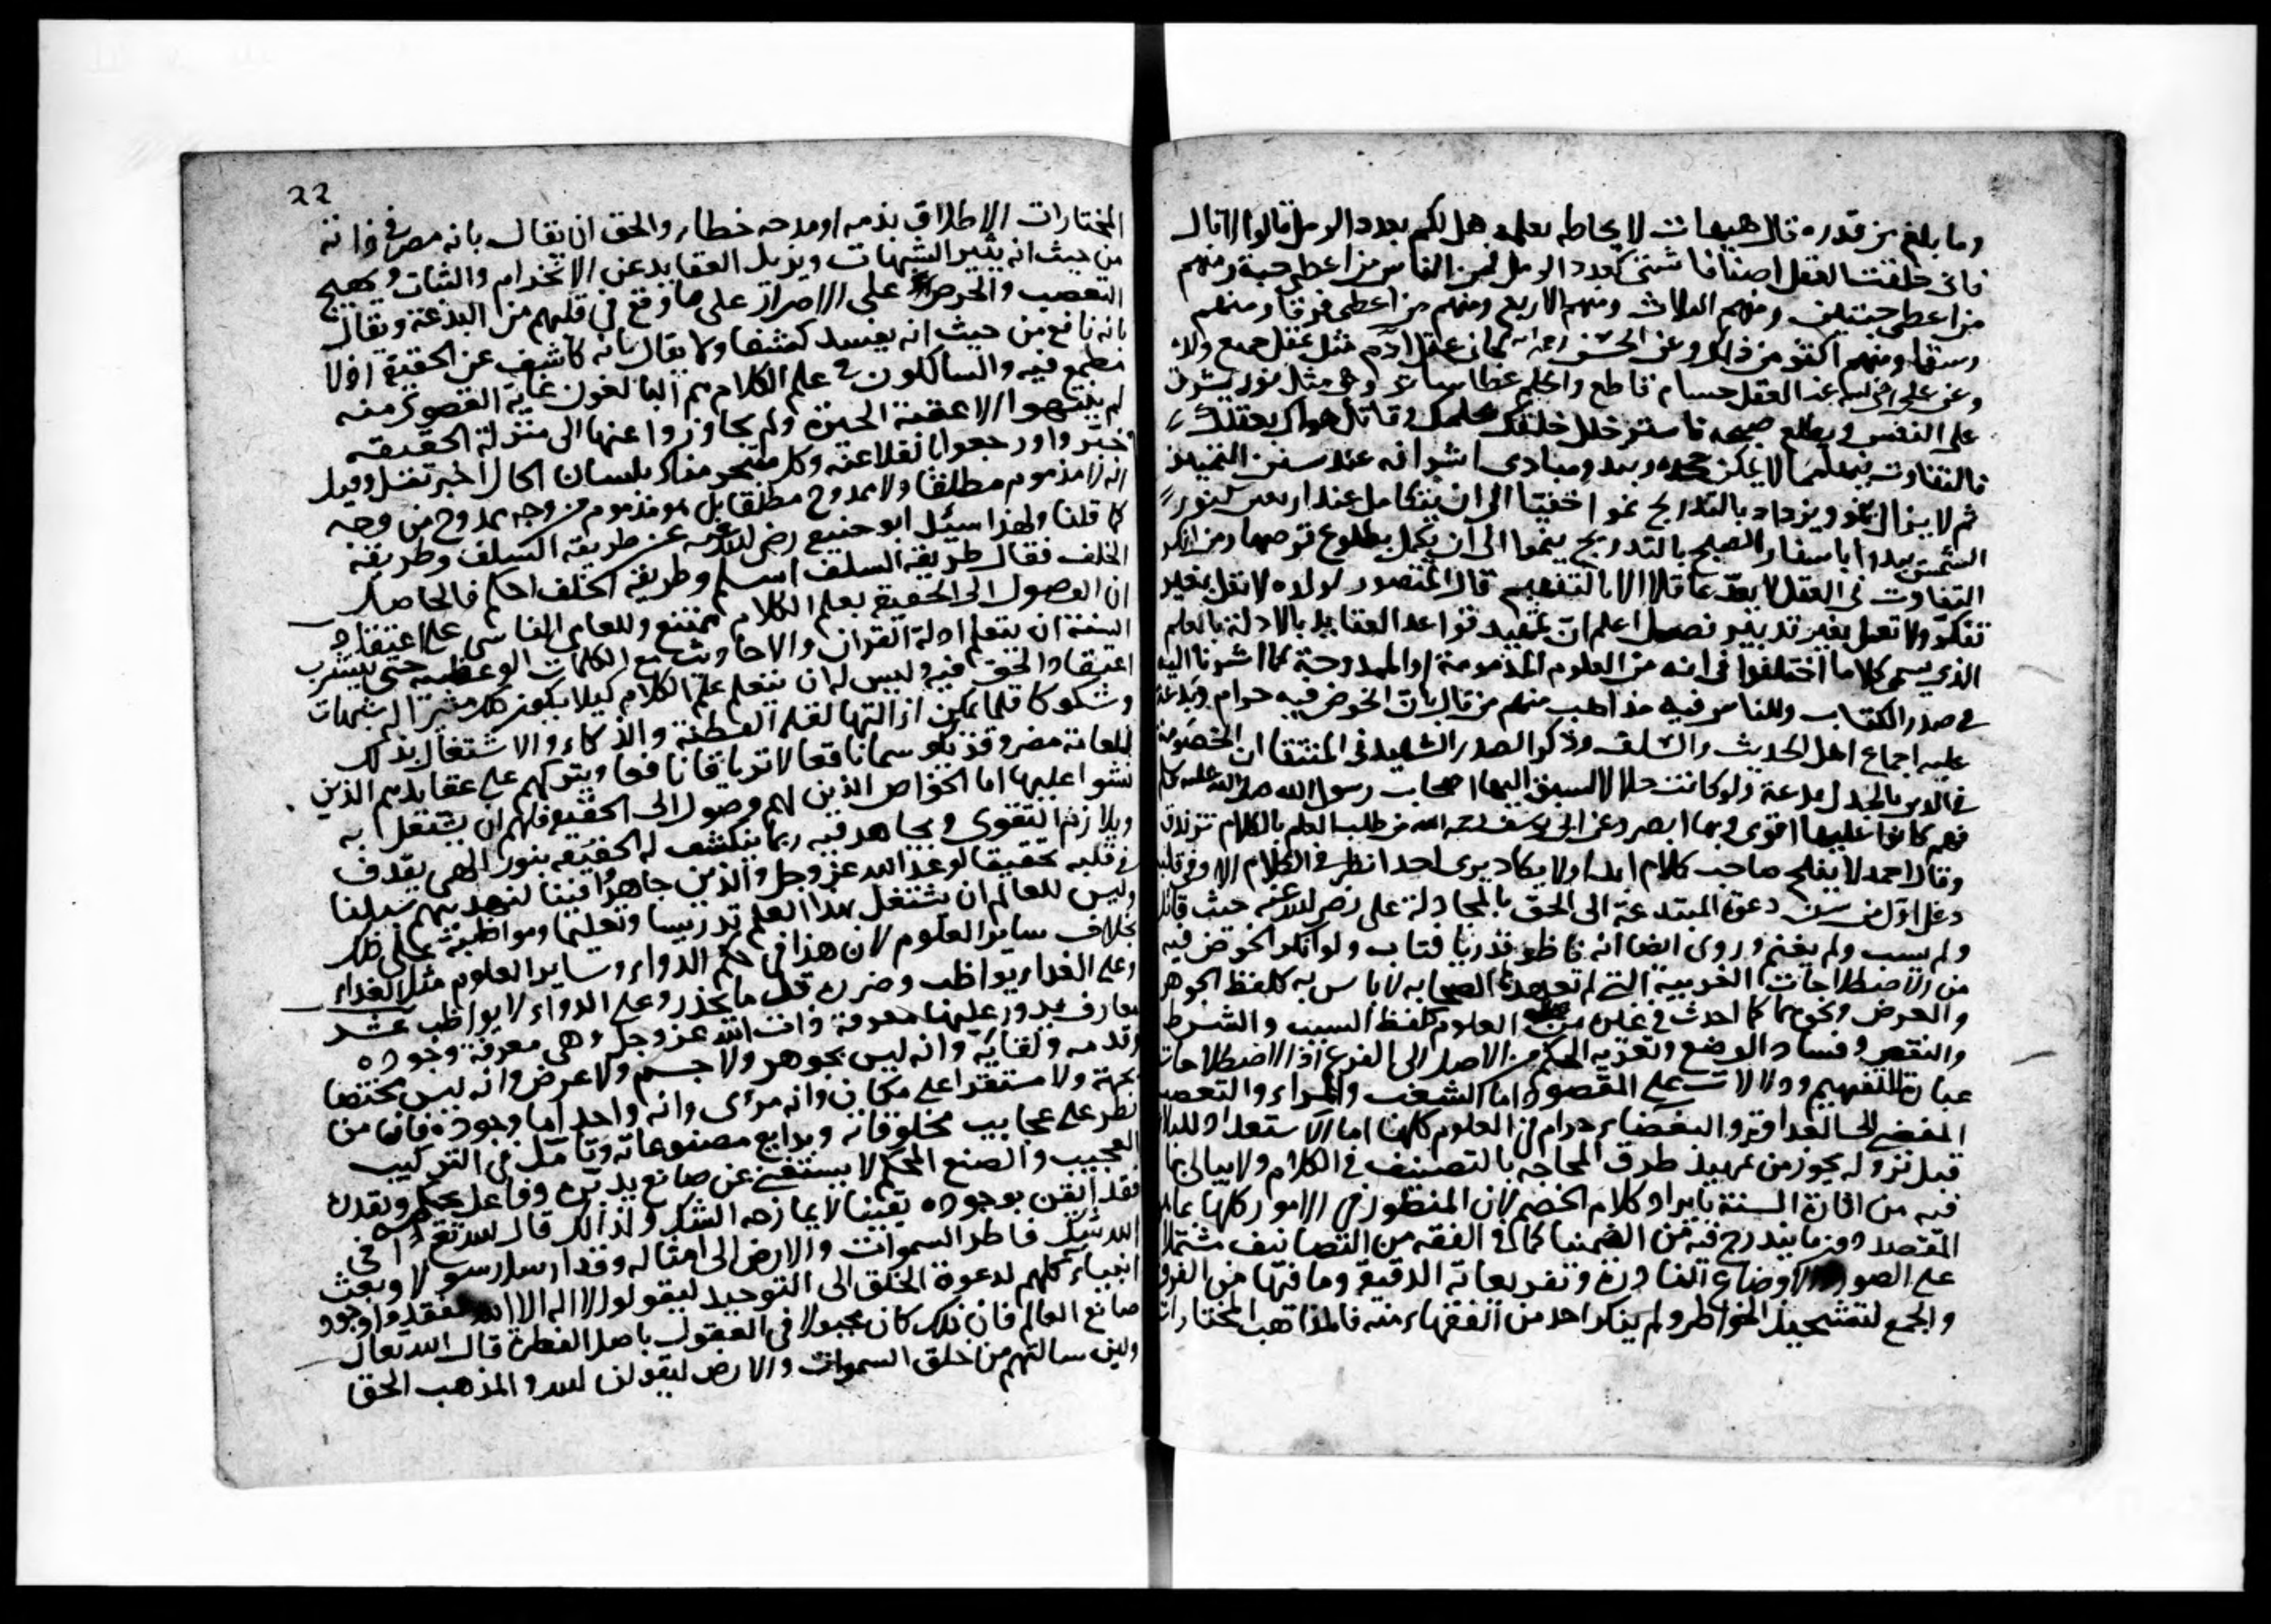 وما بلغ من قدره قال هيهات لا يحاط بعلمه هل لكم بعدد الرمل قالوا لا قال
فاني خلقت العقل اصنافا شتى كعدد الرمل فمن الناس من اعطي حبة ومنهم
من اعطي حبتين ومنهم الثلاث ومنهم الاربع ومنهم من اعطي فرقا ومنهم
وسقا ومنهم اكثر من ذلك وعن الحسن كان عقل آدم مثل عقل جميع ولده
وعن علي رضي الله عنه العقل حسام قاطع والحلم غطا ساتر وهي مثل نور يشرق
على النفس ويطلع صبحه فاستر خلل خلقك بحلمك وقاتل هواك بعقلك
فالتفاوت فيهما لا يمكن جحده ومبادي اشراقه عند سن التمييز
ثم لا يزال ينمو ويزداد بالتدريج نموا خفيا الى ان يتكامل عند اربعين كنور
الشمس يبدوا باسفار الصبح بالتدريج ينموا الى ان يكمل بطلوع قرصها ومن انكر
التفاوت في العقل لا يعد عاقلا الا بالتفهيم قال المنصور لولده لا تقل بغير
تفكر ولا تعمل بغير تدبير فصل اعلم ان تمهيد قواعد العقايد بالادلة بالعلم
الذي يسمى كلاما اختلفوا في انه من العلوم المذمومة او الممدوحة كما اشرنا اليه
في صدر الكتاب وللناس فيه مذاهب منهم من قال بان الخوض فيه حرام وبدعة
عليه اجماع اهل الحديث والسلف وذكر الصدر الشهيد في المنتقا ان الخصومة
في الدين بالجدل بدعة ولو كانت حلالا لسبق اليها اصحاب رسول الله صلى الله عليه كل
فهم كانوا عليها اقوى وبها ابصر وعن ابي يوسف رحمه الله من طلب العلم بالكلام تزندق
وقال احمد لا يفلح صاحب كلام ابدا ولا يكاد يرى احدا نظر في الكلام الا وفي قلبه
دغل اول من سن دعوة المبتدعة الى الحق بالمجادلة علي رضي الله عنه حيث قاتل
ولم يسب ولم يغنم وروى ايضا انه ناظر قدريا فتاب ولو انكر الخوض فيه
من الاصطلاحات الغريبة التي لم تعهدها الصحابه لا باس به كلفظ الجوهر
والعرض ونحوهما كما احدث في غيره من العلوم كلفظ السبب والشرط
والنقض وفساد الوضع وتعديه الحكم من الاصل الى الفرع اذ الاصطلاحات
عبارة للتفهيم ودلالات على المقصود اما الشغب والمراء والتعصب
المفضي الى العداوة والبغضاء حرام في العلوم كلها اما الاستعداد للبلاء
قبل نزوله يجوز من تمهيد طرق المحاجه بالتصنيف في الكلام ولا يبالي بما
فيه من افادة السنة بايراد كلام الخصم لان المنظور في الامور كلها بما
المقصد دون ما يندرج فيه من الضمنيا كما في الفقه من التصانيف مشتملا
على الصور والاوضاع النادرة وتفريعاته الدقيقة وما فيها من الفرق
والجمع لتشحيذ الخواطر ولم ينكر احد من الفقهاء منه فالمذاهب المختارات
22
المختارات الاطلاق بذمه او مدحه خطاء والحق ان يقال بانه مضر في ذاته
من حيث انه يثير الشبهات ويزيل العقايد عن الانخرام والثبات ويهيج
التعصب والحرص على الاصرار على ما وقع في قلبهم من البدعة ويقال
بانه نافع من حيث انه يفيد كشفا ولا يقال بانه كاشف عن الحقيقة اذ لا
نطمع فيه والسالكون في علم الكلام هم البالغون غاية القصوى منه
لم ينتهوا الا عقبة الحيرة ولم يجاوزوا عنها الى منزلة الحقيقه
انه لا مذموم مطلقا ولا ممدوح مطلقا بل هو مذموم من وجه ممدوح من وجه
كما قلنا ولهذا سئل ابو حنيفه رضي الله عنه عن طريقه السلف وطريقة
الخلف فقال طريقة السلف اسلم وطريقه الخلف احكم فالحاصل
ان الوصول الى الحقيقة بعلم الكلام ممتنع وللعامي الناشي على اعتقاد
السنة ان يتعلم ادلة القران والاحاديث مع الكلمات الوعظيه حتى يشرب
اعتقاد الحق فيه وليس له ان يتعلم علم الكلام كيلا يكون مثيرا له شبهات
وشكوكا قلما يمكن ازالتها لقله الفطنة والذكاء والاشتغال بذلك
للعامة مضر وقد يكون سما ناقعا لا ترياقا نافعا ويتركهم على عقايدهم الذين
نشوا عليها اما الخواص الذين لهم وصول الى الحقيقه فلهم ان يشتغل به
ويلازم التقوى ويجاهد فيه ربما ينكشف له الحقيقه بنور الهي يقذف
في قلبه تحقيقا لوعد الله عز وجل والذين جاهدوا فينا لنهدينهم سبلنا
وليس للعالم ان يشتغل بهذا العلم تدريسا وتعليما ومواظبة على ذلك
بخلاف ساير العلوم لان هذا في حكم الدواء وساير العلوم مثل الغداء
وعلى الغداء يواظب وضرره قل ما يحذر وعلى الدواء لا يواظب عشر
معارف يدور عليها معرفة ذات الله عز وجل وهي معرفة وجوده
وقدمه وبقايه وانه ليس بجوهر ولا جسم ولا عرض وانه ليس مختصا
بجهة ولا مستقرا على مكان وانه مرئى وانه واحد اما وجوده فان من
نظر على عجايب مخلوقاته وبدايع مصنوعاته وتامل في التركيب
العجيب والصنع المحكم لا يستغني عن صانع يدبره وفاعل يحكمه ويقدره
فقد ايقن بوجوده يقينا لا يمازجه الشك ولذلك قال الله تع افي
الله شك فاطر السموات والارض الى امثاله وقد ارسل رسولا وبعث
انبياء كلهم لدعوة الخلق الى التوحيد ليقولوا لا اله الا الله
صانع العالم فان ذلك كان مجبولا في العقول باصل الفطرة قال الله تعالى
ولين سالتهم من خلق السموات والارض ليقولن الله والمذهب الحق